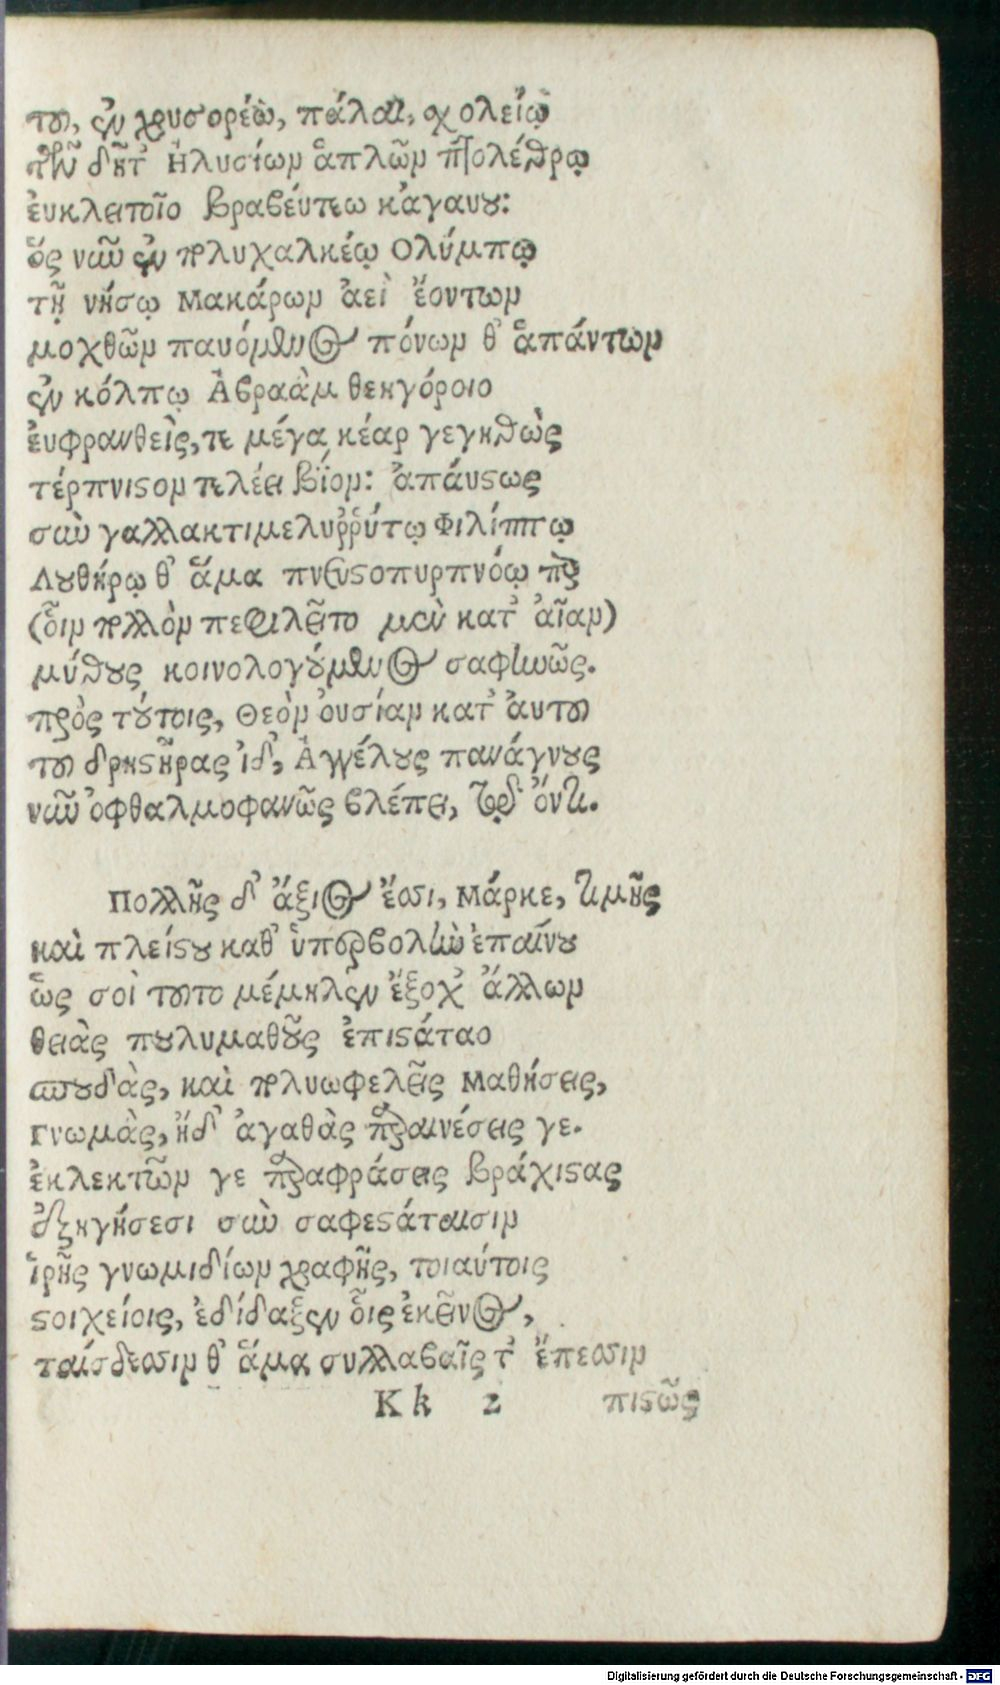 του, ἐν χρυσορέῳ, πάλαι, σχολείῳ
τῶν δῆτ' Ηλυσίων ἁπλῶν πτολέθρῳ
ἐυκλειτοῖο βραβέυτεω κἀγαυοῦ:
ὅς νῦν ἐν πολυχαλκέῳ Ολύμπῳ
τῇ νήσῳ Μακάρων ἀεὶ ἔοντων
μοχθῶν παυόμενος πόνων θ' ἁπάντων
ἐν κόλπῳ Ἀβραὰμ θεηγόροιο
ἐυφρανθεὶς, τε μέγα κέαρ γεγηθὼς
τέρπνιστον τελέει βίον: ἀπάυστως
σὺν γαλλακτιμελυῤῥύτῳ Φιλίππῳ
Λουθήρῳ θ' ἅμα πνευστοπυρπνόῳ περ
(οἷιν πολλὸν πεφιλεῖτο μὲν κατ' ἀῖαν)
μύθους κοινολογούμενος σαφηνῶς.
πρὸς τούτοις, Θεὸν ὀυσίαν κατ' ἀυτου
του δρηστῆρας ἰδ', Ἀγγέλους πανάγνους
νῦν ὀφθαλμοφανῶς βλέπει, τῷδ' ὄντι.
Πολλῆς δ' ἄξιος ἔσσι, Μάρκε, τιμῆς
καὶ πλείστου καθ' ὑπερβολὴν ἐπαίνου
ὥς σοὶ τουτο μέμηλεν ἔξοχ' ἄλλων
θειὰς πουλυμαθοῦς ἐπιστάταο
σπουδὰς, καὶ πολυωφελεῖς Μαθήσεις,
Γνωμὰς, ἤδ' ἀγαθὰς παραινέσεις γε.
ἐκλεκτῶν γε παραφράσεις βράχιστας
ἐξηγήσεσι σὺν σαφεστάταισιν
ἱρῆς γνωμιδίων γραφῆς, τοιαύτοις
στοιχείοις, ἐδίδαξεν οἷς ἐκεῖνος,
ταίσδεσσιν θ' ἅμα συλλαβαῖς τ' ἔπεσσιν
Kk 2 πιστῶς
Digitalisierung gefördert durch die Deutsche Forschungsgemeinschaft - DFG